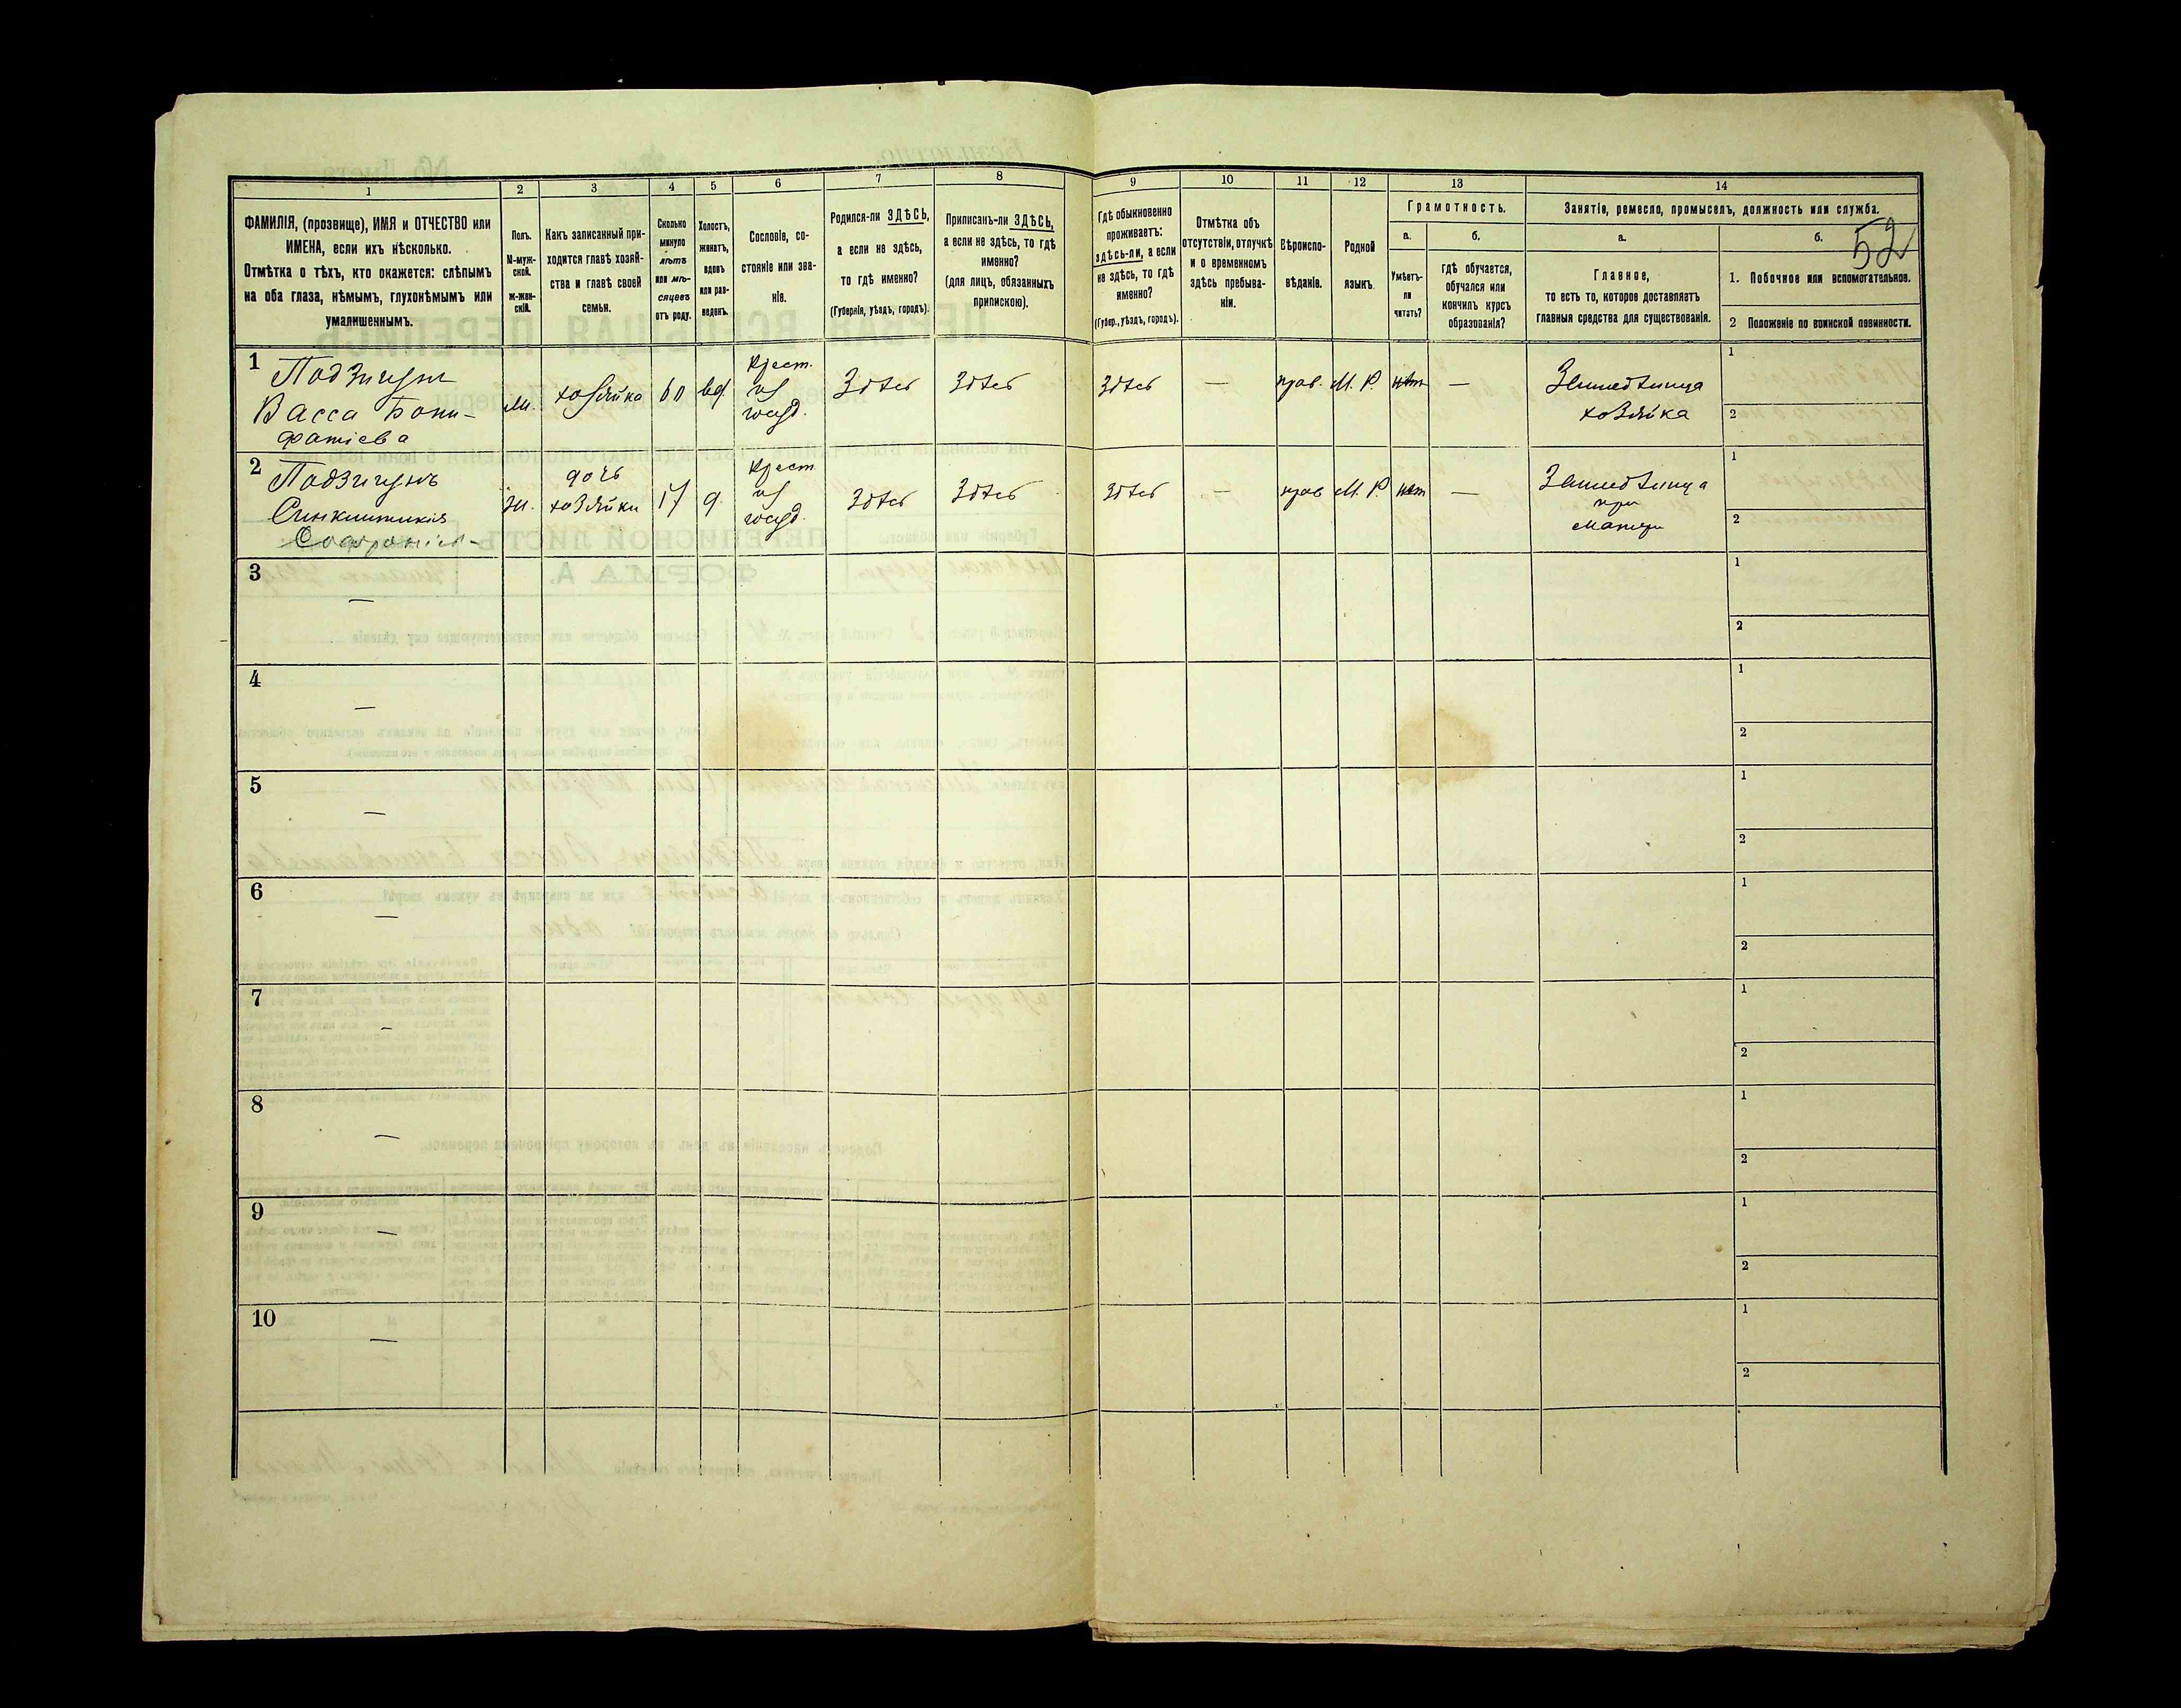 1
2
3
4
5
6
7
8
9
10
11
12
13
14
ФАМИЛІЯ, (прозвище), ИМЯ и ОТЧЕСТВО или
ИМЕНА, если ихъ нѣсколько.
Отмѣтка о тѣхъ, кто окажется: слѣпымъ
на оба глаза, нѣмымъ, глухонѣмымъ или
умалишеннымъ.
Полъ.
М-муж-
ской.
ж-жен-
скій.
Какъ записанный при-
ходится главѣ хозяй-
ства и главѣ своей
семьи.
Сколько
минуло
лѣтъ
или мѣ-
сяцевъ
отъ роду.
Холостъ,
женатъ,
вдовъ
или раз-
веденъ.
Сословіе, со-
стояніе или зва-
ніе.
Родился-ли ЗДѢСЬ,
а если не здѣсь,
то гдѣ именно?
(Губернія, уѣздъ, городъ).
Приписанъ-ли ЗДѢСЬ,
а если не здѣсь, то гдѣ
именно?
(для лицъ, обязанныхъ
припискою).
Гдѣ обыкновенно
проживаетъ:
здѣсь-ли, а если
не здѣсь, то гдѣ
именно?
(Губер., уѣздъ, городъ).
Отмѣтка объ
отсутствіи, отлучкѣ
и о временномъ
здѣсь пребыва-
ніи.
Вѣроиспо-
вѣданіе.
Родной
языкъ.
Грамотность.
а.
б.
Умѣетъ-
ли
читать?
гдѣ обучается,
обучался или
кончилъ курсъ
образованія?
Занятіе, ремесло, промыселъ, должность или служба.
а.
б.
52
Главное,
то есть то, которое доставляетъ
главныя средства для существованія.
1. Побочное или вспомогательное.
2 Положеніе по воинской повинности.
1
Васса Бони-
фатіева
хозяйка
60
вд.
Крест.
из
госуд.
Здѣсь
Здѣсь
Здѣсь
—
прав.
М. Р.
нѣт
—
Земледѣлица
хозяйка
1
2
2
Синклитикія
ж.
дочь
хозяйки
17
д.
Крест
из
госуд.
Здѣсь
Здѣсь
Здѣсь
—
прав
М. Р.
нѣт
—
Земледѣлица
при
матери
1
2
3
—
1
2
4
—
1
2
5
—
1
2
6
—
1
2
7
—
1
2
8
—
1
2
9
—
1
2
10
—
1
2